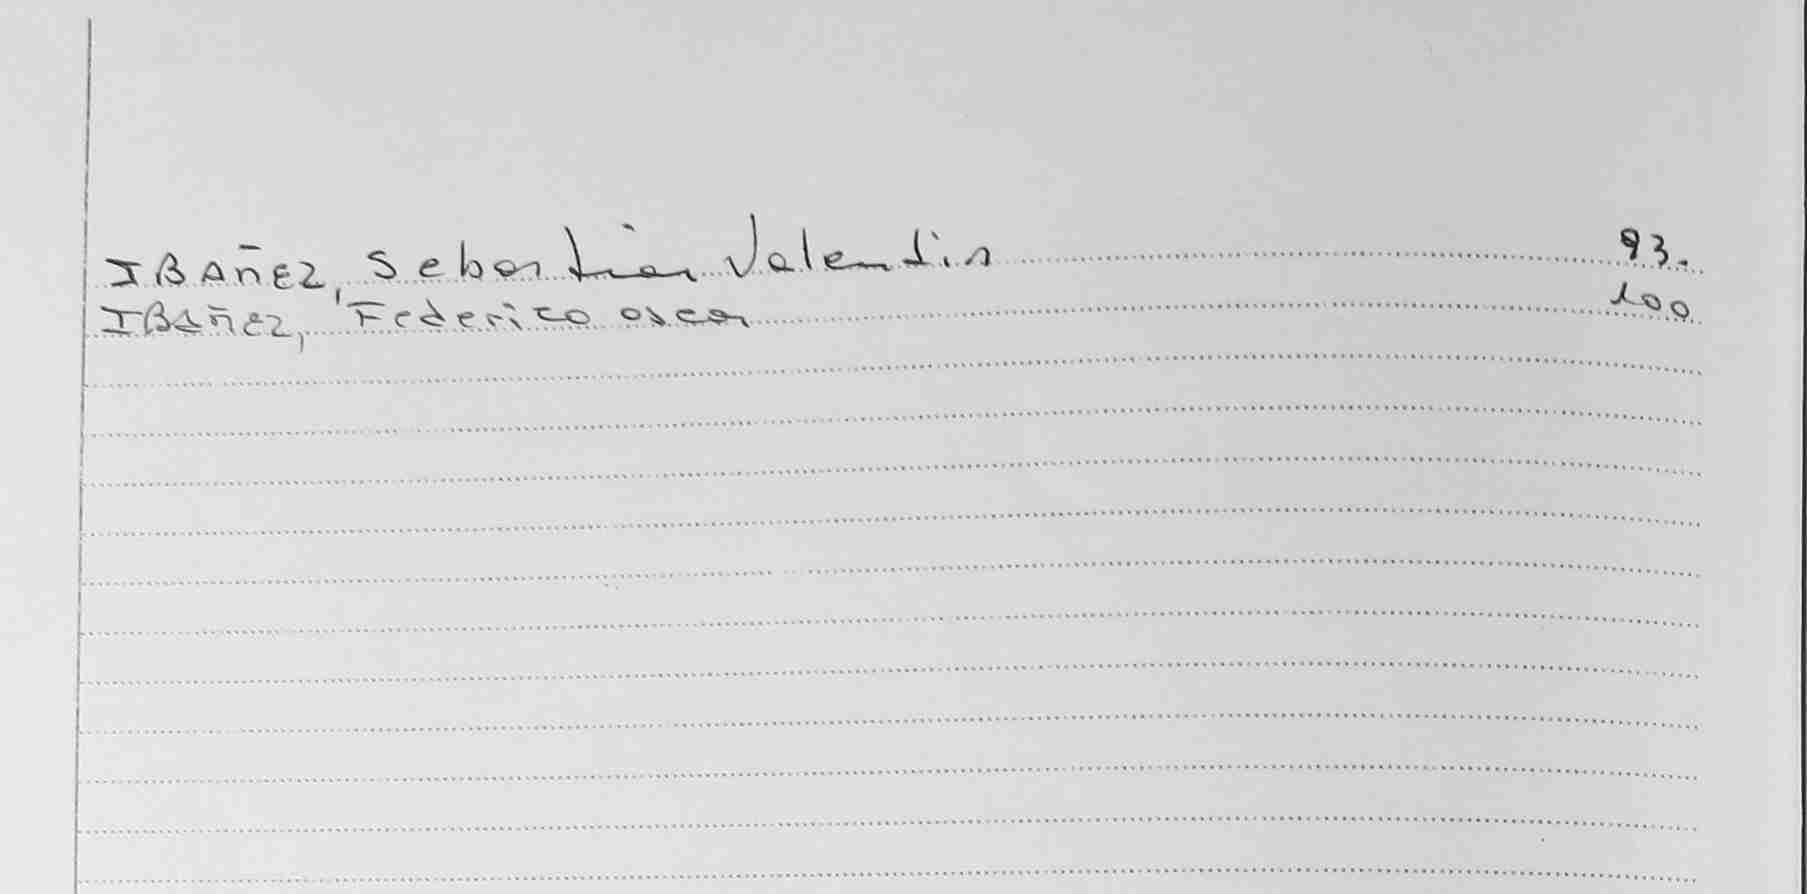 IBAÑEZ, Sebastian Valentin 93.
IBAÑEZ, Federico oscar 100